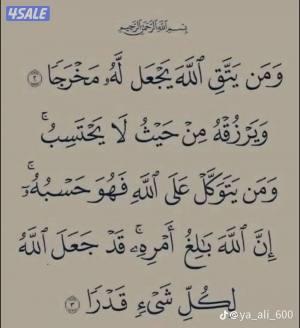 4SALE
بِسْمِ اللَّهِ الرَّحْمَٰنِ الرَّحِيمِ
وَمَن يَتَّقِ ٱللَّهَ يَجْعَل لَّهُۥ مَخْرَجًا ٢
وَيَرْزُقْهُ مِنْ حَيْثُ لَا يَحْتَسِبُ ۚ
وَمَن يَتَوَكَّلْ عَلَى ٱللَّهِ فَهُوَ حَسْبُهُۥٓ ۚ
إِنَّ ٱللَّهَ بَٰلِغُ أَمْرِهِۦ ۚ قَدْ جَعَلَ ٱللَّهُ
لِكُلِّ شَىْءٍ قَدْرًا ٣
@ya_ali_600